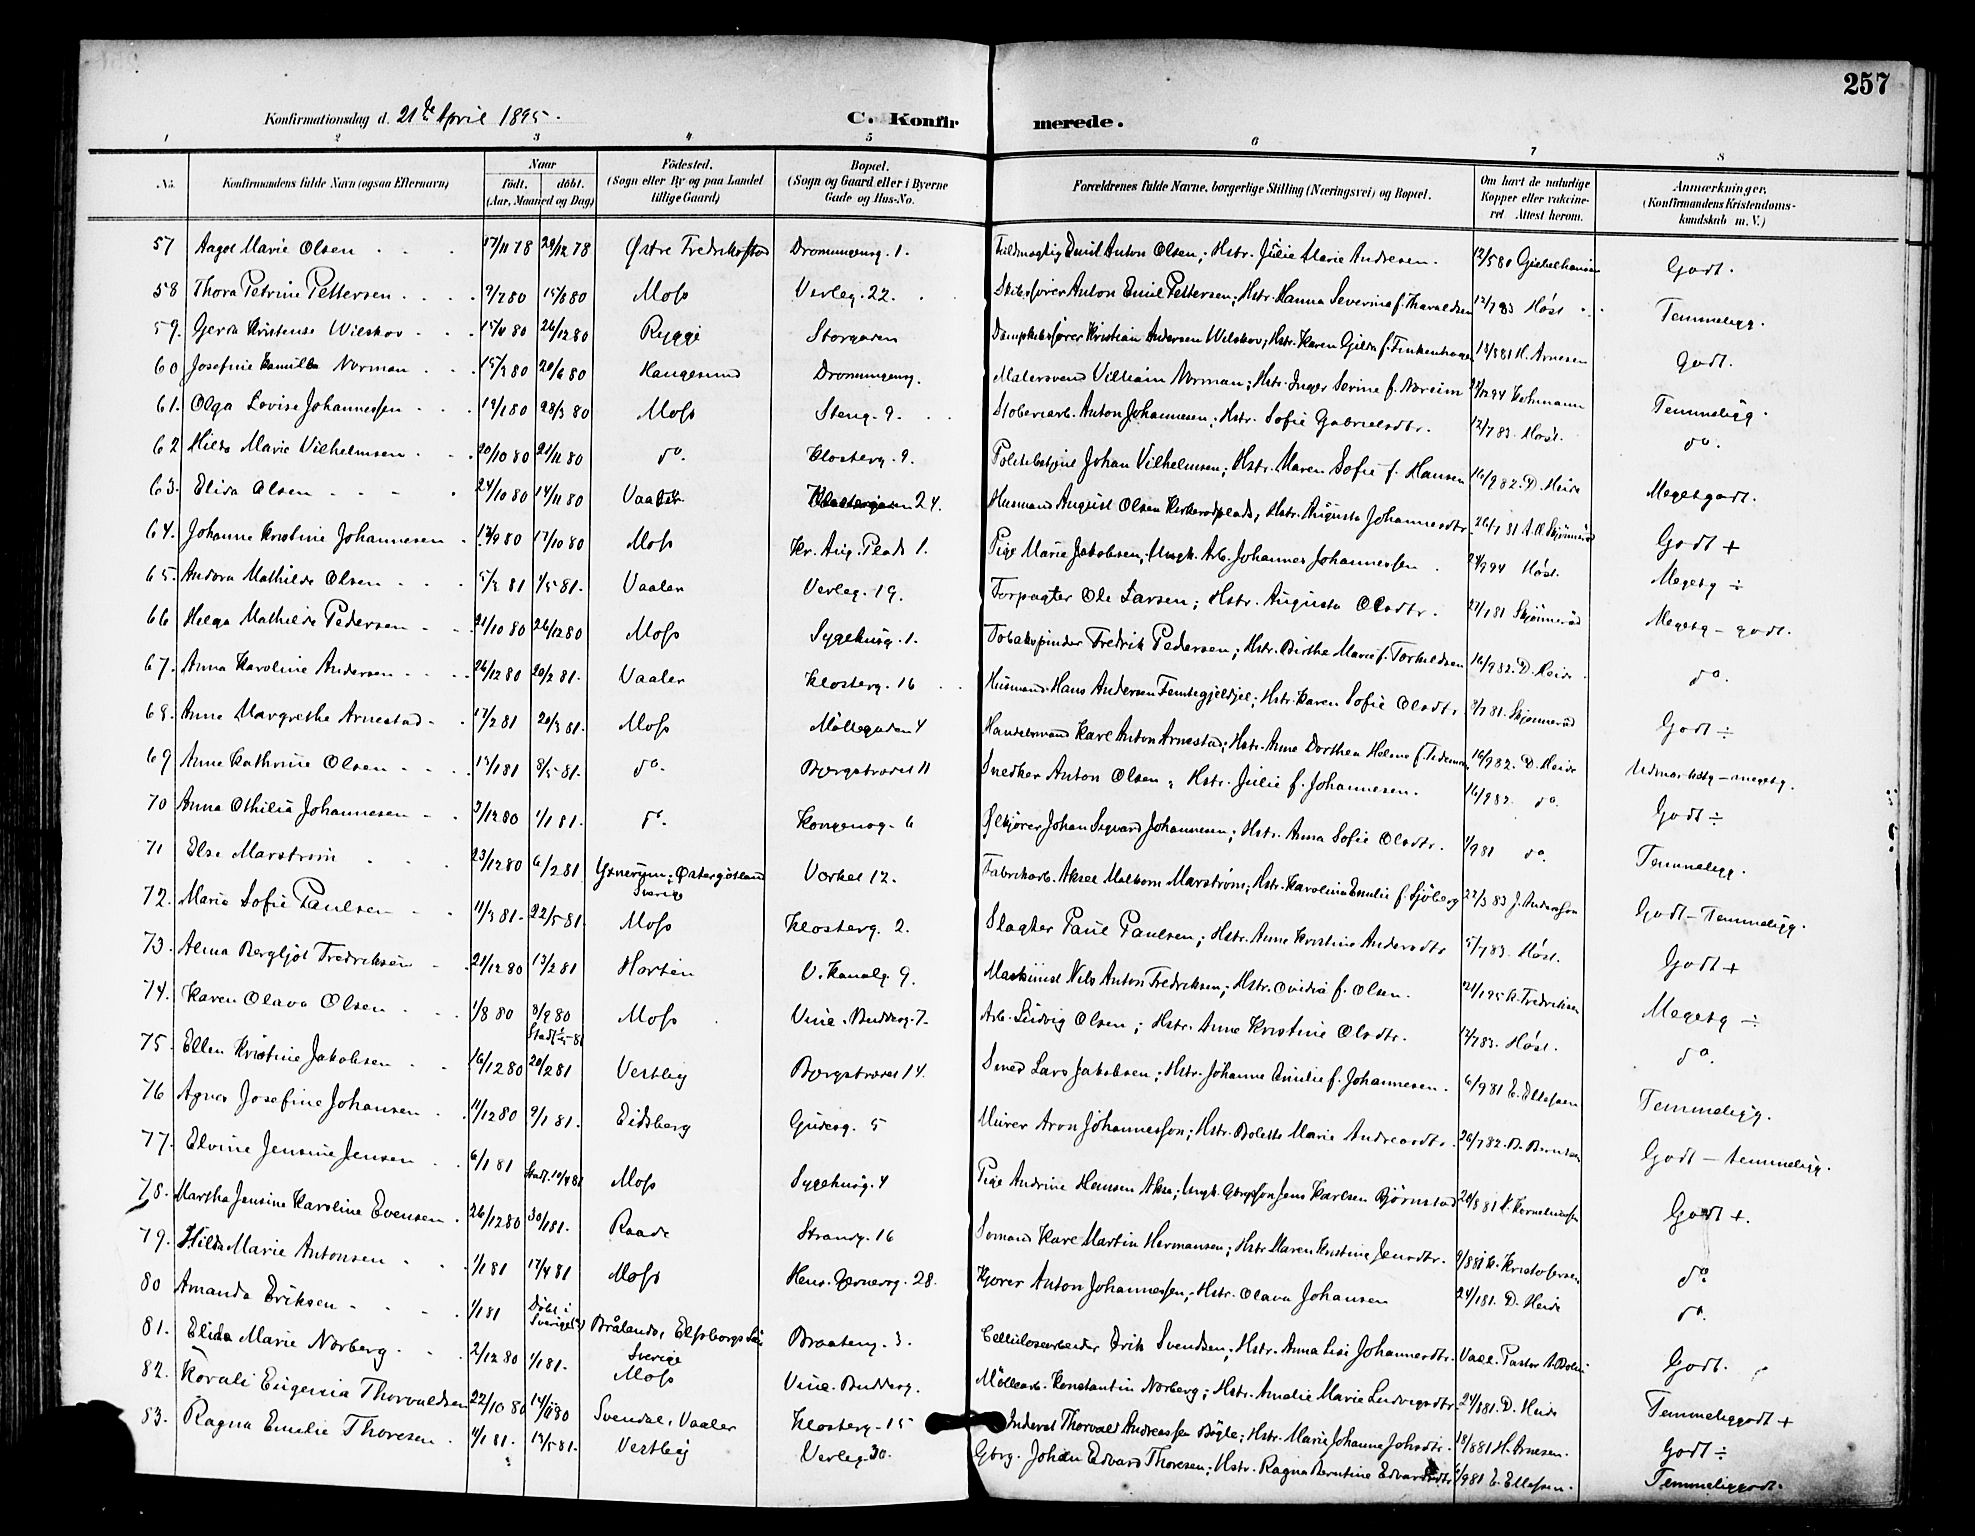 257
Konfirmationsdag d. 21de April 1895.
C. Konfirmerede.
1 2 3 4 5 6 7 8
No. Konfirmandens fulde Navn (ogsaa Efternavn) Naar født. døbt. (Aar, Maaned og Dag) Fødested. (Sogn eller By og paa Landet tillige Gaard) Bopæl. (Sogn og Gaard eller i Byerne Gade og Hus-No. Forældrenes fulde Navne, borgerlige Stilling (Næringsvei) og Bopæl. Om havt de naturlige Kopper eller vaccineret Attest herom. Anmærkninger. (Konfirmandens Kristendomskundskab m. V.)
57 Aagot Marie Olsen 17/11 78 29/12 78 Østre Fredrikstad Dronningensg. 1. Fuldmægtig Emil Anton Olsen; Hstr. Julie Marie Andresen. 12/5 80 Godt.
58 Thora Petrine Pettersen 9/7 80 15/8 80 Moss Verleg. 22. Skibsfører Anton Emil Pettersen; Hstr. Hanna Severine f. Thoraldsen 12/7 83 Høst Temmeligg.
59. Gerda Kristense Wilskov 15/11 80 26/12 80 Rygge Storgaden Dampskibsfører Kristian Andersen Wilskov; Hstr. Karen Gilda f. Finkenhagen 18/8 81 H. Arnesen Godt.
60 Josefine Kamilla Norman 15/3 80 20/6 80 Haugesund Dronningensg. Malersvend Vilhelm Norman; Hstr. Inger Serine f. Noreim 94 Temmeligg.
61. Olga Lovise Johannessen 19/1 80 28/3 80 Moss Steng. 9. Støberiarb. Anton Johannesen; Hstr. Sofie Gabrielsdtr. 12/7 83 Høst. do.
62 Hilda Marie Vilhelmsen 20/10 80 21/11 80 do. Klosterg. 9. Politibetjent Johan Vilhelmsen; Hstr. Maren Sofie f. Hansen 16/9 82. D. Heide Megetgodt.
63. Elida Olsen 24/10 80 14/11 80 Vaaler 24. Husmand August Olsen Kirkerødplads; Hstr. Augusta Johannesdtr. 26/7 81 Godt +
64. Johanne Kristine Johannesen 12/9 80 17/10 80 Moss Kr. Aug. Plads 1. Pige Marie Jakobsen; Ungk. Arb. Johannes Johannessen 94 Høst. Megetg ÷
65. Andora Mathilde Olsen 5/3 81 1/5 81. Vaaler Verleg. 19. Forpagter Ole Larsen; Hstr. Augusta Olsdtr. 81 Skjønnerød Megetg - godt.
66 Helga Mathilde Pedersen 21/10 80 26/12 80 Moss Sygehusg. 1. Tobakspinder Fredrik Pedersen; Hstr. Birthe Marie f. Torkildsen 16/9 82. D. Heide. do.
67. Anna Karoline Andersen 26/12 80 20/2 81. Vaaler Klosterg. 16 Husmand Hans Andersen Femtegjeldjel; Hstr. Karen Sofie Olsdtr. 81. Skjønnerød Godt ÷
68. Anne Margrethe Arnestad 17/2 81 20/3 81. Moss Møllegaden 4 Handelsmand Karl Anton Arnestad; Hstr. Anne Dorthea Helene f. 16/9 82. D. Heide Udmærketg - megetg.
69 Anne Kathrine Olsen 15/1 81 8/5 81. do. Bergstrædet 11 Snedker Anton Olsen, Hstr. Julie f. Johannesen. 16/9 82 do. Godt ÷
70 Anna Othilia Johannesen 3/12 80 1/1 81. do. Kongensg. 6 Ølkjører Johan Sigvard Johannesen; Hstr. Anna Sofie Olsdtr. 1/9 81 do. Temmeligg.
71 Else Marstrøm 23/12 80 6/2 81 Yxnerum; Østergøtland Sverige Værket 12. Fabrikarb. Aksel Malkom Marstrøm; Hstr. Karolina Emilie f. Sjøberg 22/3 83 J. Andersson Godt - Temmeligg.
72. Marie Sofie Paulsen 11/3 81. 22/5 81. Moss Klosterg. 2. Slagter Paul Paulsen; Hstr. Anne Kristine Andersdtr. 5/7 83. Høst. Godt +
73. Alma Bergljot Fredriksen 21/12 80 13/2 81 Horten V. Kanalg. 9. Maskinist Nils Anton Fredriksen; Hstr. Ovidia f. Olsen. 95 Fredriksen Megetg ÷
74. Karen Olava Olsen 1/8 80 8/9 80 Moss Vine. Budderg. 7. Arb. Ludvig Olsen; Hstr. Anne Kristine Olsdtr. 12/7 83. Høst. do.
75. Ellen Kristine Jakobsen 16/12 80 20/2 81 Vestby Bergstrædet 14. Smed Lars Jakobsen; Hstr. Johanne Emilie f. Johannesen. 6/9 81 E. Ellefsen Temmeligg.
76 Agnes Josefine Johansen 11/12 80 9/1 81. Eidsberg Gudesg. 5 Murer Aron Johannessen; Hstr. Bolette Marie Andreasdtr. 26/7 82. Godt - temmeligg.
77. Elvine Jensine Jensen 6/1 81 Stadf. 10/4 81 Moss Sygehusg. 4 Pige Andrine Hansen; Ungk. Jens Karlsen Bjørnstad Godt +.
78. Martha Jensine Karoline Evensen 26/12 80 30/1 81. Raade Strandg. 16 Sømand Karl Martin Hermansen; Hstr. Maren Kristine Jensdtr. Kristofersen do
79. Hilda Marie Antonsen 1/1 81 17/4 81 Moss Henr. Gernersg. 28. Kjører Anton Johannessen; Hstr. Olava Johansen 24/1 81. D. Heide do.
80 Amanda Eriksen 1/1 81 Døbt i Sverige (?) Brålanda, Elfsborgs Sverige Braateng. 3. Cellulosarbeider Erik Svendsen; Hstr. Anna Lise Johannesdtr. Vacc. Pastor Godt.
81. Elida Marie Norberg 2/12 80 1/1 81. Moss Vine. Budderg. Møllearb. Konstantin Norberg; Hstr. Amalie Marie Ludvigsdtr. 81. D. Heide Temmeliggodt +
82. Korali Eugenia Thorvaldsen 22/10 80 14/11 80 Svendal, Vaaler Klosterg. 15 Inderst Thorvald Andreassen Bøgle; Hstr. Marie Johanne Johsdtr. 18/8 81 H. Arnesen. Godt ÷
83. Ragna Emilie Thoresen 11/1 81. 13/5 81. Vestby Verleg. 30. Gbrg. Johan Edvard Thoresen; Hstr. Ragna Berntine Edvardsdtr. 6/9 81 E. Ellefsen. Temmeliggodt.